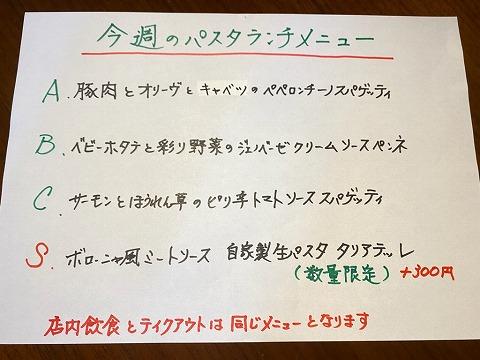 今週のパスタランチメニュー
A. 豚肉とオリーヴとキャベツのペペロンチーノスパゲッティ
B. ベビーホタテと彩り野菜のジェノベーゼクリームソースペンネ
C. サーモンとほうれん草のピリ辛トマトソーススパゲッティ
S. ボローニャ風ミートソース 自家製生パスタ タリアテッレ
(数量限定) +300円
店内飲食とテイクアウトは同じメニューとなります